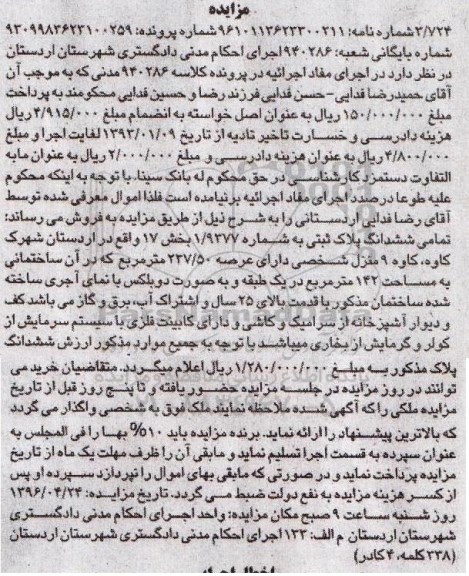 مزایده
۳/۷۲۴ شماره نامه: ۹۶۱۰۱۱۳۶۲۳۳۰۰۲۱۱ شماره پرونده: ۹۳۰۹۹۸۳۶۲۳۱۰۰۲۵۹
شماره بایگانی شعبه: ۹۴۰۲۸۶ اجرای احکام مدنی دادگستری شهرستان اردستان
در نظر دارد در اجرای مفاد اجرائیه در پرونده کلاسه ۹۴۰۲۸۶ مدنی که به موجب آن
آقای حمیدرضا فدایی-حسن فدایی فرزند رضا و حسین فدایی محکومند به پرداخت
مبلغ ۱۵۰/۰۰۰/۰۰۰ ریال به عنوان اصل خواسته به انضمام مبلغ ۴/۹۱۵/۰۰۰ ریال
هزینه دادرسی و خسارت تاخیر تادیه از تاریخ ۱۳۹۳/۰۱/۰۹ لغایت اجرا و مبلغ
۴/۸۰۰/۰۰۰ ریال به عنوان هزینه دادرسی و مبلغ ۲/۰۰۰/۰۰۰ ریال به عنوان مابه
التفاوت دستمزد کارشناسی در حق محکوم له بانک سینا، با توجه به اینکه محکوم
علیه طوعا درصدد اجرای مفاد اجرائیه برنیامده است فلذا اموال معرفی شده توسط
آقای رضا فدایی اردستانی را به شرح ذیل از طریق مزایده به فروش می رساند:
تمامی ششدانگ پلاک ثبتی به شماره ۱/۹۳۷۷ بخش ۱۷ واقع در اردستان شهرک
کاوه، کاوه ۹ منزل شخصی دارای عرصه ۲۳۷/۵۰ مترمربع که در آن ساختمانی
به مساحت ۱۴۲ مترمربع در یک طبقه و به صورت دوبلکس با نمای آجری ساخته
شده ساختمان مذکور با قدمت بالای ۲۵ سال و اشتراک آب، برق و گاز می باشد کف
و دیوار آشپزخانه از سرامیک و کاشی و دارای کابینت فلزی با سیستم سرمایش از
کولر و گرمایش از بخاری میباشد با توجه به جمیع موارد مذکور ارزش ششدانگ
پلاک مذکور به مبلغ ۱/۲۸۰/۰۰۰/۰۰۰ ریال اعلام میگردد. متقاضیان خرید می
توانند در روز مزایده در جلسه مزایده حضور یافته و تا پنج روز قبل از تاریخ
مزایده ملکی را که آگهی شده ملاحظه نمایند ملک فوق به شخصی واگذار می گردد
که بالاترین پیشنهاد را ارائه نماید. برنده مزایده باید ۱۰% بها را فی المجلس به
عنوان سپرده به قسمت اجرا تسلیم نماید و مابقی آن را ظرف مهلت یک ماه از تاریخ
مزایده پرداخت نماید و در صورتی که مابقی بهای اموال را نپردازد سپرده او پس
از کسر هزینه مزایده به نفع دولت ضبط می گردد. تاریخ مزایده: ۱۳۹۶/۰۴/۲۴
روز شنبه ساعت ۹ صبح مکان مزایده: واحد اجرای احکام مدنی دادگستری
شهرستان اردستان م الف: ۱۳۳ اجرای احکام مدنی دادگستری شهرستان اردستان
(۳۳۸ کلمه، ۴ کادر)